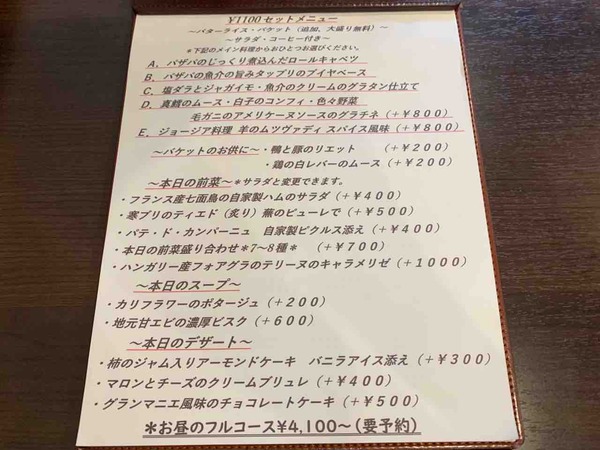 ¥1100セットメニュー
～バターライス・バケット（追加、大盛り無料）～
～サラダ・コーヒー付き～
＊下記のメイン料理からおひとつお選びください。
A，バザバのじっくり煮込んだロールキャベツ
B，バザバの魚介の旨みタップリのブイヤベース
C，塩ダラとジャガイモ・魚介のクリームのグラタン仕立て
D，真鱈のムース・白子のコンフィ・色々野菜
毛ガニのアメリケーヌソースのグラチネ（＋￥８００）
E，ジョージア料理 羊のムツヴァディ スパイス風味（＋￥８００）
～バケットのお供に～・鴨と豚のリエット （＋￥２００）
・鶏の白レバーのムース（＋￥２００）
～本日の前菜～＊サラダと変更できます。
・フランス産七面鳥の自家製ハムのサラダ（＋￥４００）
・寒ブリのティエド（炙り）蕪のピューレで（＋￥５００）
・パテ・ド・カンパーニュ 自家製ピクルス添え（＋￥４００）
・本日の前菜盛り合わせ＊7～8種＊ （＋￥７００）
・ハンガリー産フォアグラのテリーヌのキャラメリゼ（＋￥１０００）
～本日のスープ～
・カリフラワーのポタージュ（＋２００）
・地元甘エビの濃厚ビスク（＋６００）
～本日のデザート～
・柿のジャム入りアーモンドケーキ バニラアイス添え（＋￥３００）
・マロンとチーズのクリームブリュレ（＋￥４００）
・グランマニエ風味のチョコレートケーキ（＋￥５００）
＊お昼のフルコース¥4,100～（要予約）